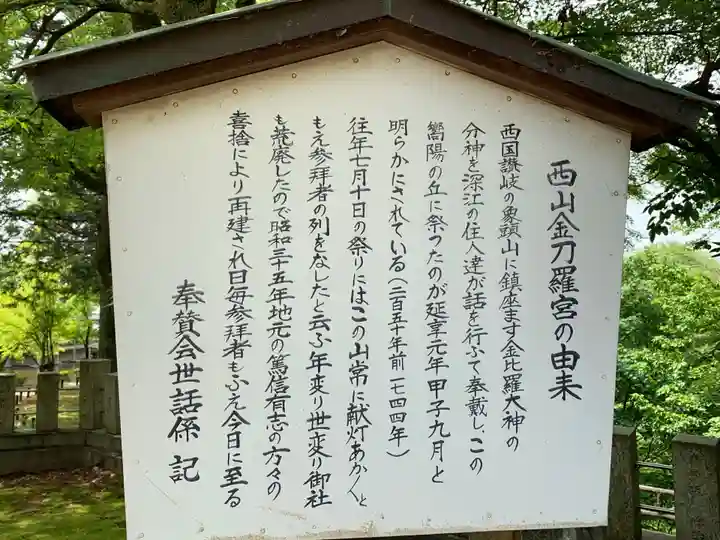 西山金刀羅宮の由来
西国讃岐の象頭山に鎮座ます金比羅大神の
分神を深江の住人達が話を行ふて奉戴し、この
嶌陽の丘に祭つたのが延享元年甲子九月と
明らかにされている(二百五十年前一七四四年)
往年七月十日の祭りにはこの山常に献灯あかあかと
もえ参拝者の列をなしたと云ふ年変り世変り御社
も荒廃したので昭和三十五年地元の篤信有志の方々の
喜捨により再建され日毎参拝者もふえ今日に至る
奉賛会世話係 記